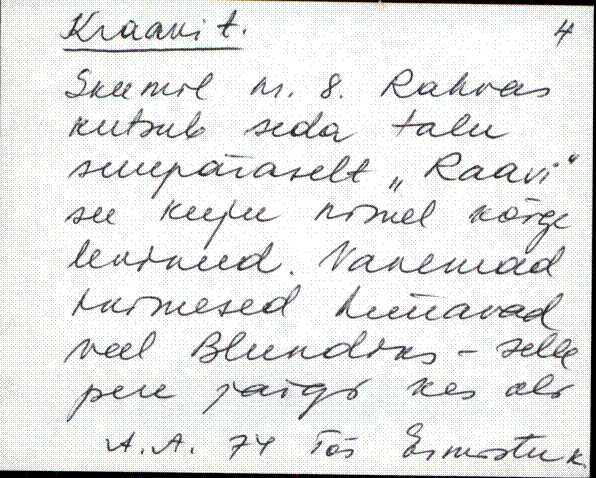 Kraavi t. 4
Skeemil nr. 8. Rahvas
kutsub seda talu
suupäraselt „Raavi“
see kuju nimel kõige
levinud. Vanemad
inimesed hüüavad
veel Blundins – selle
pere järgi kes oli
A.A. 74 Tõs Ermistu k.